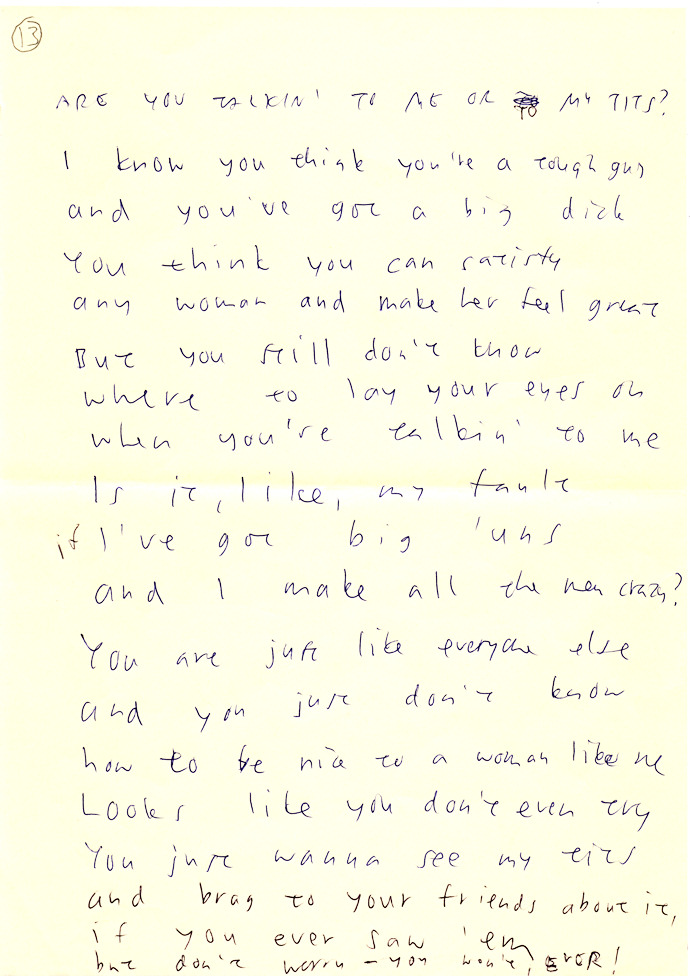 13
ARE YOU TALKIN' TO ME OR TO MY TITS?
I know you think you're a tough guy
and you've got a big dick
You think you can satisfy
any woman and make her feel great
But you still don't know
where to lay your eyes on
when you're talkin' to me
Is it, like, my fault
if I've got big 'uns
and I make all the men crazy?
You are just like everyone else
and you just don't know
how to be nice to a woman like me
Looks like you don't even try
You just wanna see my tits
and brag to your friends about it,
if you ever saw 'em
but don't worry – you won't, EVER!